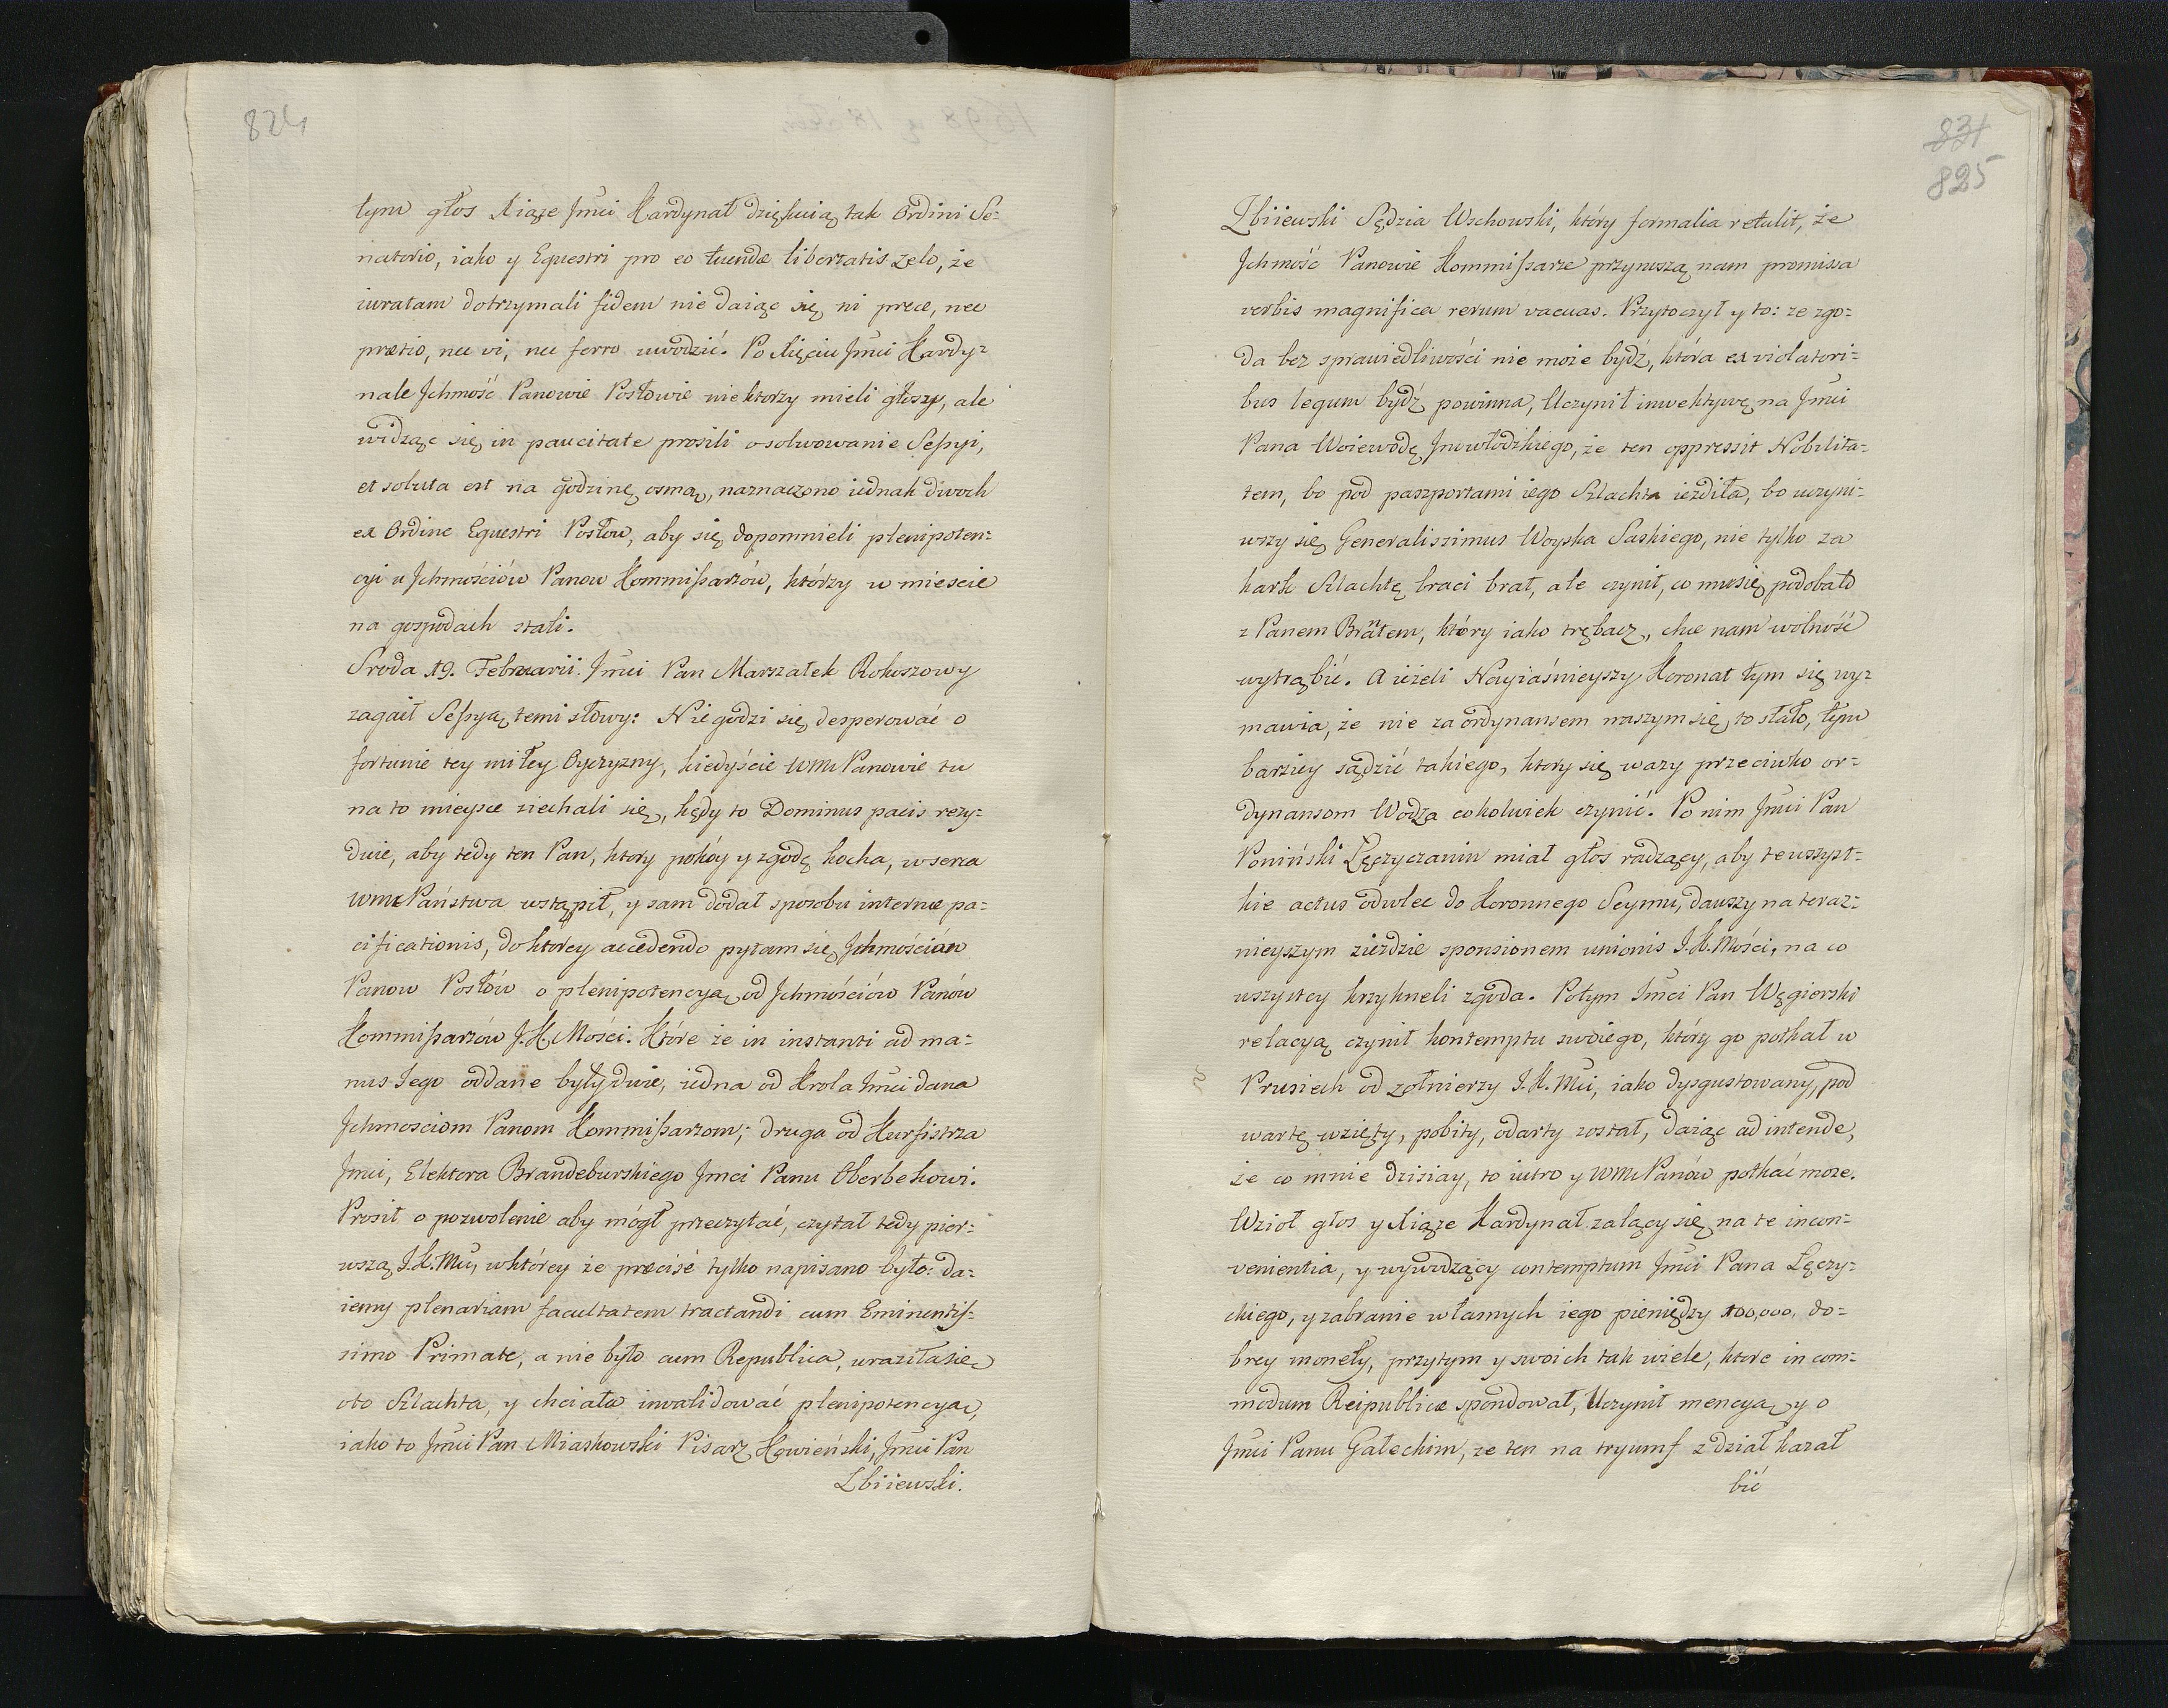 824
tym głos Xiąże Jmći Kardynał dziękuiąc tak Ordini Se=
natorio, iako y Equestri pro eo tuendæ libertatis zelo, że
iuratam dotrzymali fidem nie daiąc się ni prece, nec
pretio, nec vi, nec ferro uwodzić. Po Xięciu Jmći Kardy=
nale Jchmość Panowie Posłowie niektorzy mieli głosy, ale
widząc się in paucitate prosili o solwowanie Seßyi,
et soluta est na godzinę osmą, naznaczono iednak dwoch
ex Ordine Equestri Posłow, aby się dopomnieli plenipoten=
cyi u Jchmościów Panow Kommißarzów, którzy w mieście
na gospodach stali.
Sroda 19. Februarii. Jmći Pan Marszałek Rokoszowy
zagaił Seßyą temi słowy: Nie godzi się desperować o
fortunie tey miłey Oyczyzny, kiedyście WM Panowie tu
na to mieysce ziechali się, kędy to Dominus pacis rezy=
duie, aby tedy ten Pan, ktory pokóy y zgodę kocha, w serca
WM Państwa wstąpił, y sam dodał sposobu internæ pa=
cificationis, do ktorey accedendo pytam się Jchmościów
Panow Posłów o plenipotencyą od Jchmościów Panów
Kommißarzów J. K. Mości. Które że in instanti ad ma=
nus Jego oddane były dwie, iedna od Krola Jmći dana
Jchmosciom Panom Kommißarzom; druga od Kurfistrza
Jmći, Elektora Brandeburskiego Jmci Panu Oberbekowi.
Prosił o pozwolenie aby mógł przeczytać, czytał tedy pier=
wszą J. K. Mći, w którey że præcisè tylko napisano było: da=
iemy plenariam facultatem tractandi cum Eminentiſ=
simo Primate, a nie było cum Republica, uraziła się
oto Szlachta, y chciała inwalidować plenipotencyą,
iako to Jmći Pan Miaskowski Pisarz Kowieński, Jmći Pan
Zbiiewski.
831
825
Zbiiewski Sędzia Wschowski, który formalia retulit, że
Jchmość Panowie Kommißarze przynoszą nam promissa
verbis magnifica rerum vacuas. Przytoczył y to: ze zgo=
da bez sprawiedliwości nie może bydź, która ex violatori=
bus legum bydź powinna, Uczynił inwektywę na Jmći
Pana Woiewodę Jnowłodzkiego, że ten oppressit Nobilita=
tem, bo pod paszportami iego Szlachta ieździła, bo uczyni=
wszy się Generalissimus Woyska Saskiego, nie tylko za
kark Szlachtę braci brał, ale czynił, co mu się podobało
z Panem Brantem, który iako trębacz, chce nam wolność
wytrąbić. A ieżeli Nayiaśnieyszy Koronat tym się wy=
mawia, że nie za ordynansem naszym się to stało, tym
barziey sądzić takiego, ktory się wazy przeciwko or=
dynansom Wodza cokolwiek czynić. Po nim Jmći Pan
Poniński Łęczyczanin miał głos radzący, aby te wszyst=
kie actus odwlec do Koronnego Seymu, dawszy na teraz=
nieyszym zieździe sponsionem unionis J. K. Mości, na co
wszyscy krzykneli zgoda. Potym Jmći Pan Węgierski
relacyą czynił kontemptu swoiego, który go potkał w
Prusiech od zołnierzy J. K. Mći, iako dysgustowany, pod
wartę wzięty, pobity, odarty został, daiąc ad intende,
że co mnie dzisiay, to iutro y WM Panów potkać może.
Wzioł głos y Xiąże Kardynał zalący się na te incon=
venientia, y wywodzący contemptum Jmći Pana Łęczy=
ckiego, y zabranie własnych iego pieniędzy 100,000, do=
brey monety, przytym y swoich tak wiele, ktore in com=
modum Reipublicæ spendował, Uczynił mencyą y o
Jmći Panu Gałeckim, ze ten na tryumf z dział kazał
bić